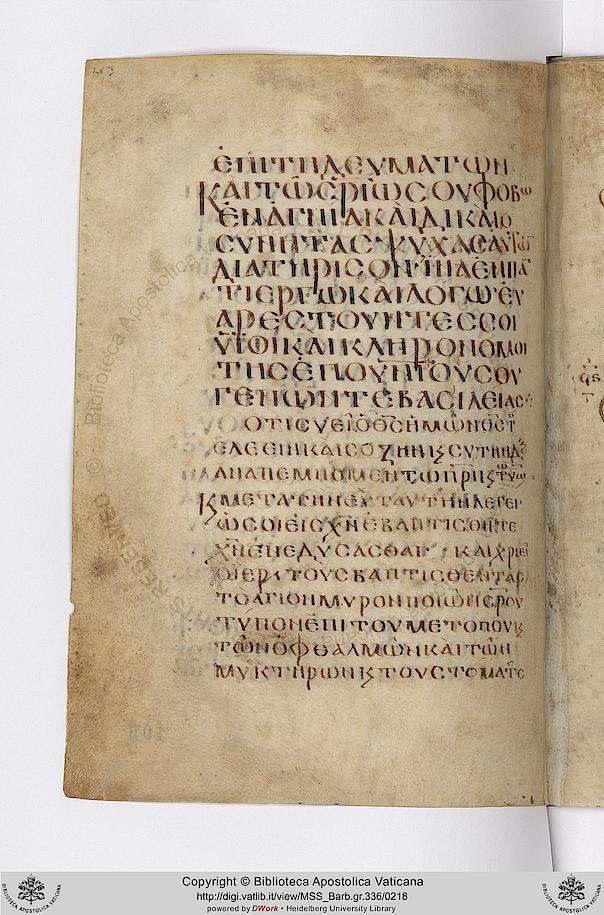 ἐπιτηδευμάτων
καὶ τῶ ἔργω σου φόβω
ἐν ἁγνία κ δικαιο
σύνη τὰς ψυχὰς αὐτῶν
διατηρισον ἵνα ἐν πα
ντὶ ἔργω καὶ λόγω εὐ
αρεστοῦντες σοι
υἱοὶ καὶ κληρονόμοι
τῆς ἐπουνίου σου
γένωντε βασιλείας
ὅτι σὺ εἶ ὁ θς ἡμῶν ὁ θς τοῦ
ἐλεεῖν καὶ σώζειν κ σοὶ τὴν δόξ
ἀναπέμπομεν τῶ πρι κ τῶ υιω
κ μετὰ τὴν εὐχ ταύτην λέγει
ὡς οἱ εἰς χν ἐβαπτίσθητε
χν ἐνεδύσασθαι καὶ χρίει
ὁ ἱερ τοὺς βαπτισθέντας
τὸ ἅγιον μύρον ποιῶν σρου
τύπον ἐπὶ τοῦ μετόπου κ
τῶν ὀφθαλμῶν καὶ τῶν
μυκτήρων κ τοῦ στόματος
Copyright © Biblioteca Apostolica Vaticana
http://digi.vatlib.it/view/MSS_Barb.gr.336/0218
powered by DWork • Heidelberg University Library